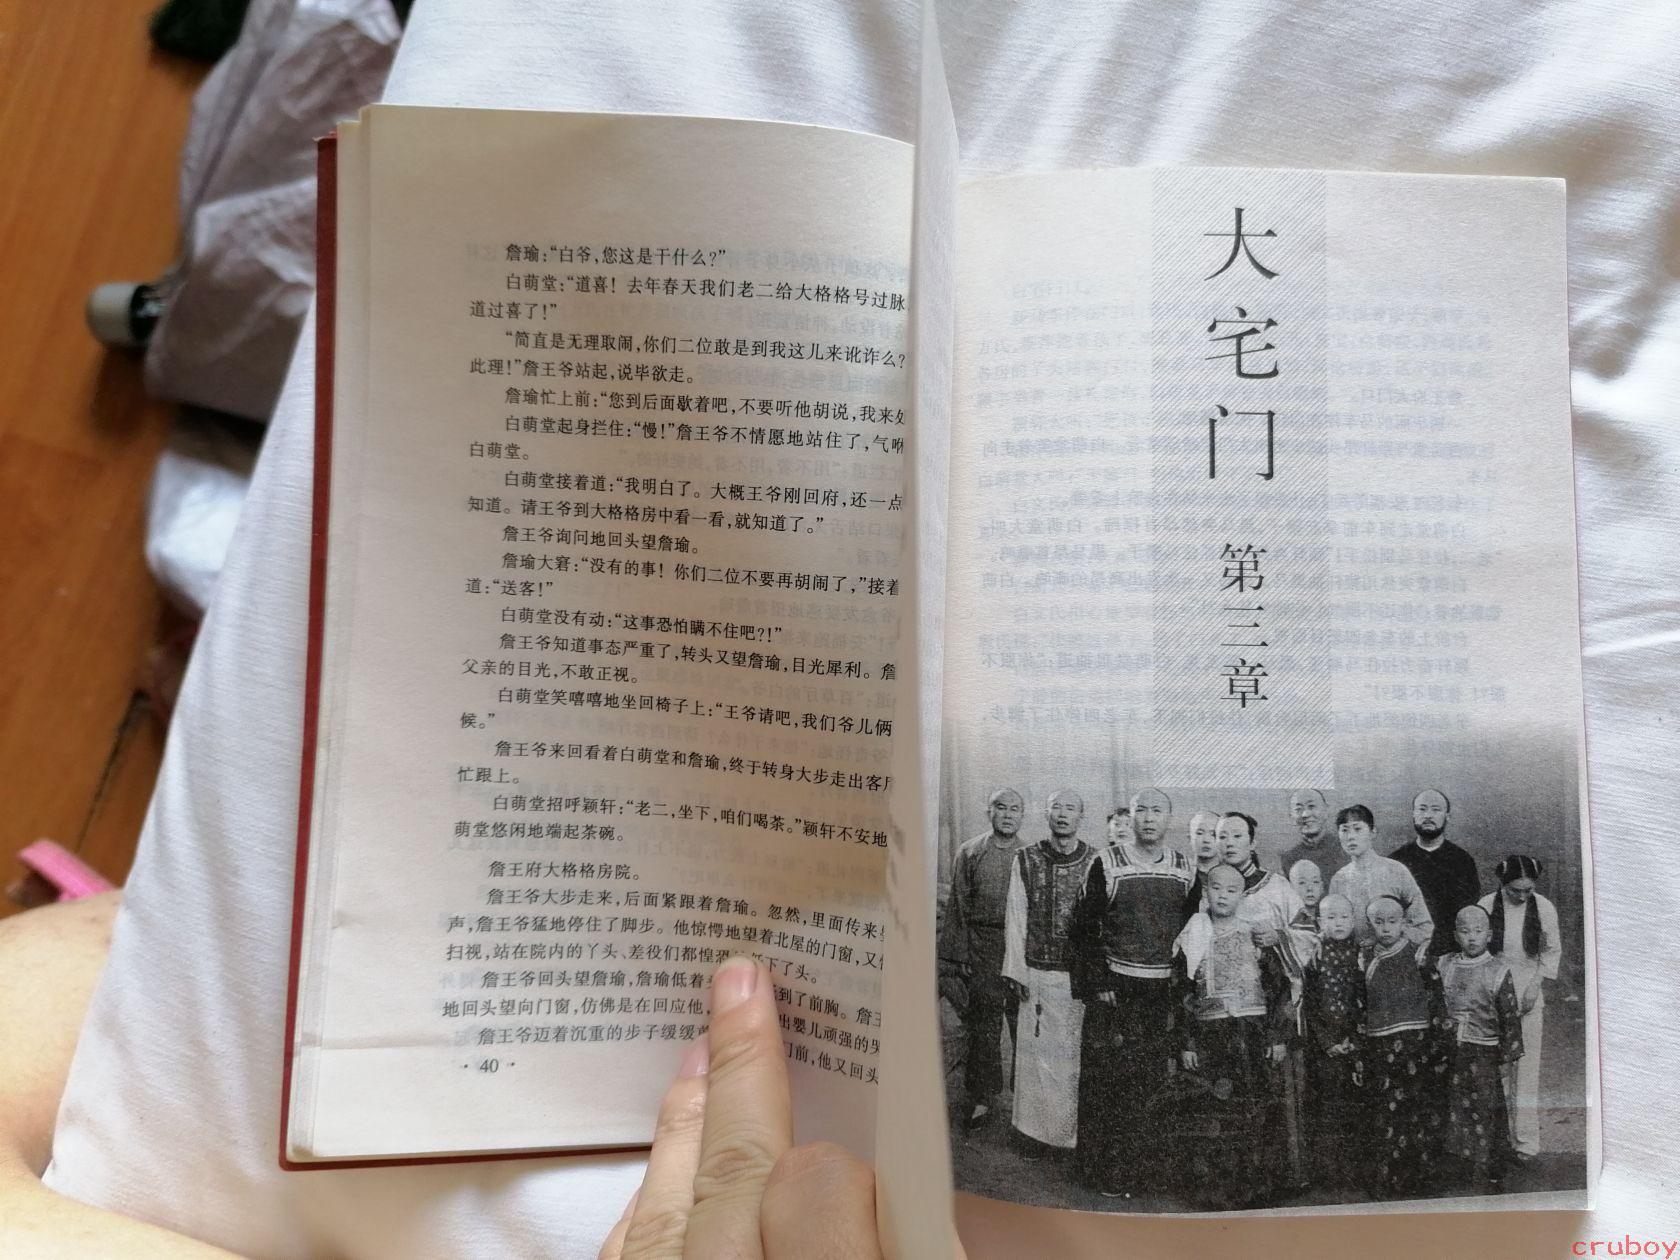 詹瑜：“白爷，您这是干什么？”
白萌堂：“道喜！去年春天我们老二给大格格号过脉
道过喜了！”
“简直是无理取闹，你们二位敢是到我这儿来讹诈么？
此理！”詹王爷站起，说毕欲走。
詹瑜忙上前：“您到后面歇着吧，不要听他胡说，我来处
白萌堂起身拦住：“慢！”詹王爷不情愿地站住了，气咻
白萌堂。
白萌堂接着道：“我明白了。大概王爷刚回府，还一点
知道。请王爷到大格格房中看一看，就知道了。”
詹王爷询问地回头望詹瑜。
詹瑜大窘：“没有的事！你们二位不要再胡闹了，”接着
道：“送客！”
白萌堂没有动：“这事恐怕瞒不住吧？！”
詹王爷知道事态严重了，转头又望詹瑜，目光犀利。詹
父亲的目光，不敢正视。
白萌堂笑嘻嘻地坐回椅子上：“王爷请吧，我们爷儿俩
候。”
詹王爷来回看着白萌堂和詹瑜，终于转身大步走出客厅
忙跟上。
白萌堂招呼颖轩：“老二，坐下，咱们喝茶。”颖轩不安地
萌堂悠闲地端起茶碗。
詹王府大格格房院。
詹王爷大步走来，后面紧跟着詹瑜。忽然，里面传来
声，詹王爷猛地停住了脚步。他惊愕地望着北屋的门窗，又
扫视，站在院内的丫头、差役们都惶恐 低下了头。
詹王爷回头望詹瑜，詹瑜低着 到了前胸。詹王
地回头望向门窗，仿佛是在回应他， 出婴儿顽强的哭
詹王爷迈着沉重的步子缓缓 门前，他又回头
·40·
大宅门
第三章
cruboy